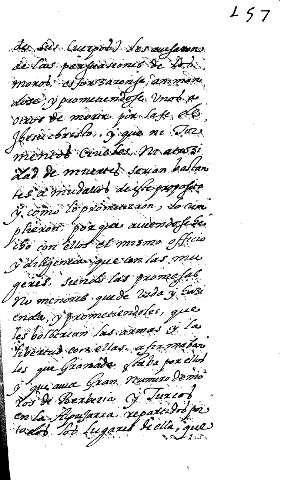 157
de sus cuerpos) les
de las persuasiones de los
moros, esforzaronse, animan
dose y prometiendose unos a
otros de morir por la fe de
Jhesucristo, y que ni tor
mentos crueles, ni atroci
dad de muertes serian bastan
tes a mudarlos de este proposito
y como lo prometieron, lo cum
plieron por que
con ellos el mismo officio
y diligencia que con las mu
geres, siendo las promesas
no menores que de vida y hazi
enda, y prometiendoles, que
les bolberian las armas y la
libertad con ellas, afirmando
les que Granada estaba por ellos
y que avia gran numero de mo
ros de Berberia y Turcos
en la Alpujarra, repartidos por
todos los lugares de ella, que